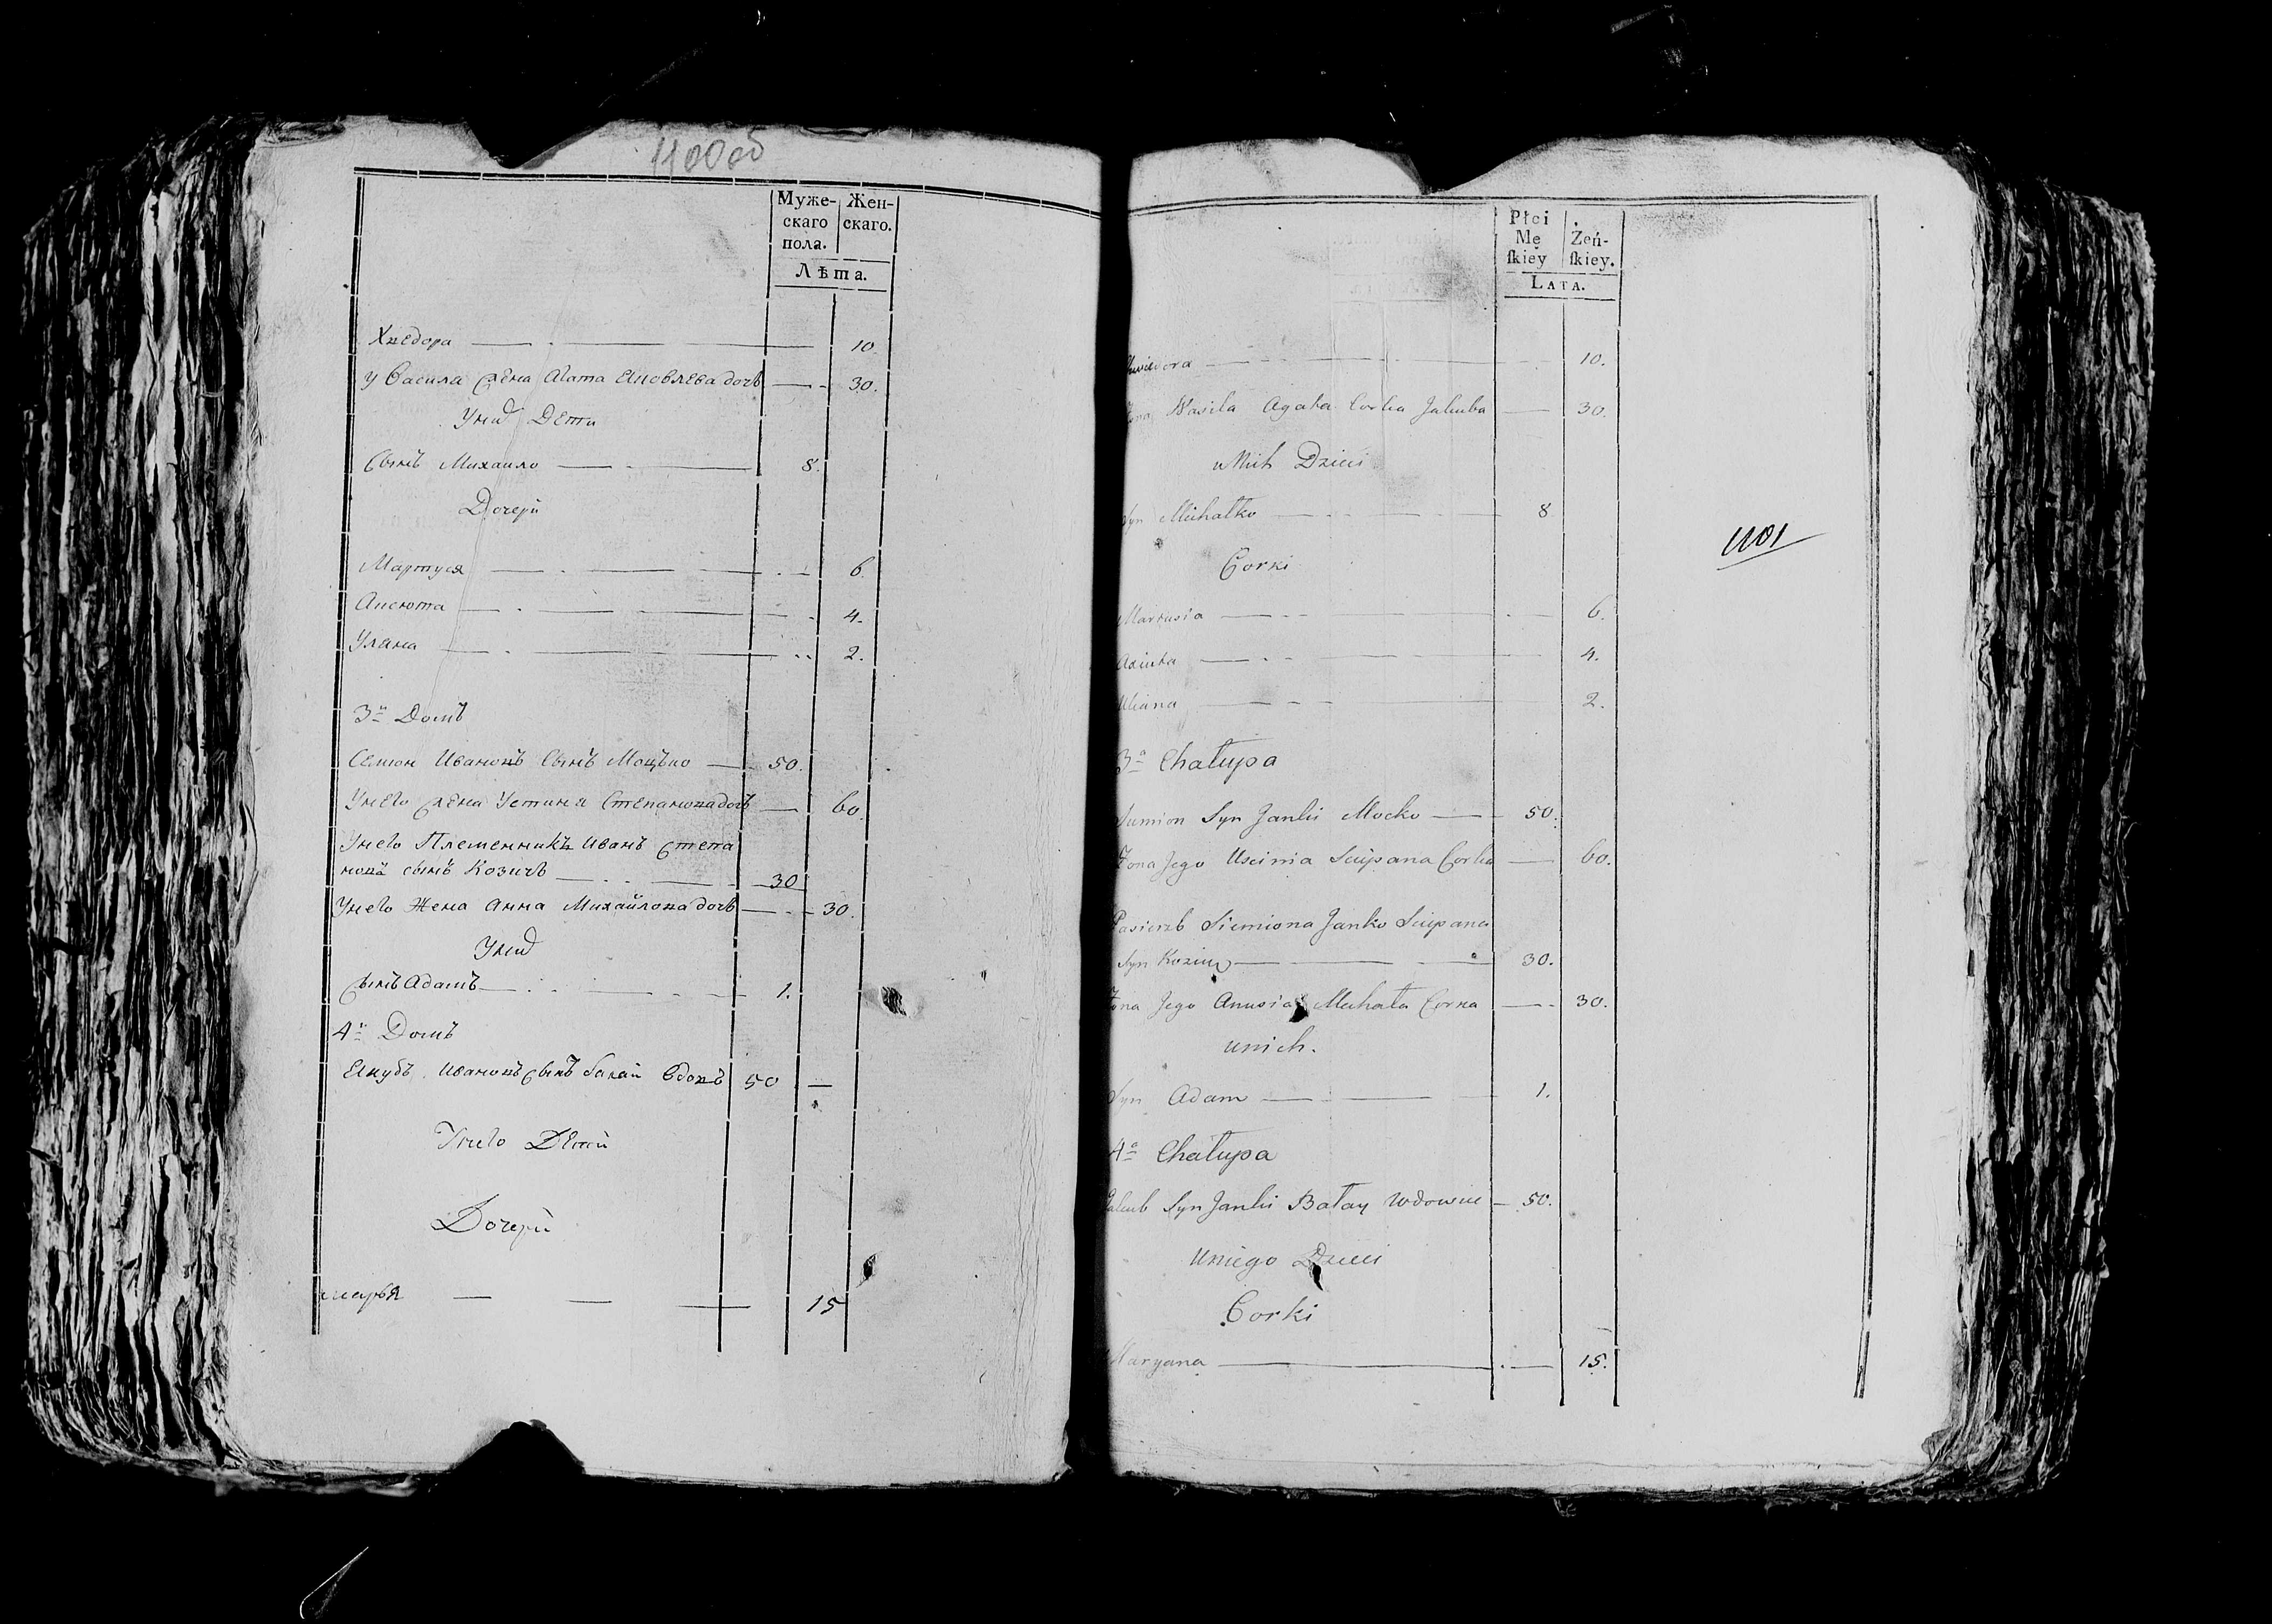 1100об
Муже-
скаго
пола.
Жен-
скаго.
Лѣта.
Хведора 10.
У Васила жена Агата Яковлева дочь 30.
У них Дети
Сынъ Михаило 8.
Дочери
Мартуся 6.
Аксюта 4.
Уляна 2.
3й Домъ
Семион Ивановъ Сынъ Моцько 50.
У него жена Устиня Степановна дочь 60.
У него Племенникъ Иванъ Степа
новъ сынъ Козичъ 30
У него Жена Анна Михайлова дочь 30.
У них
сынъ Адамъ 1.
4й Домъ
Якубъ Ивановъ сынъ Балай вдовъ 50
У него Дети
Дочери
марья 15
Płci
Mę
ſkiey
Żeń-
ſkiey.
LATA.
Chwiedora 10.
Żona Wasila Agata Corka Jakuba 30.
u Nich Dzieci
Syn Michałko 8
Corki
Martusia 6.
Axiuta 4.
Uliana 2.
3a Chałupa
Siemion Syn Janki Mocko 50.
Żona Jego Uscinia Sciepana Corka 60.
Pasierzb Siemiona Janko Sciepana
Syn Kozicz 30.
Żona Jego Anusia Michała Corka 30.
u nich.
Syn Adam 1.
4a Chałupa
Jakub Syn Janki Bałay Wdowiec 50.
u niego Dzieci
Corki
Maryana 15.
1101